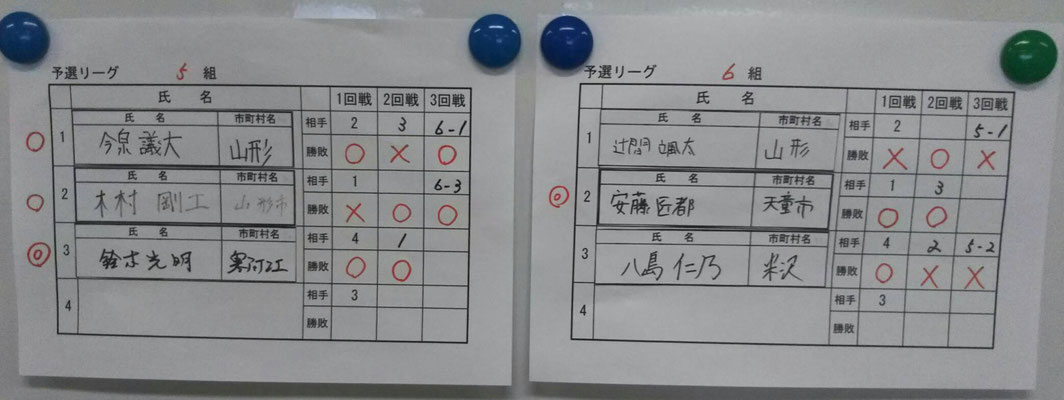 予選リーグ 5 組
氏 名 1回戦 2回戦 3回戦
1 氏 名 市町村名 相手 2 3 6-1
今泉 議大 山形 勝敗 ○ × ○
2 氏 名 市町村名 相手 1 6-3
木村 剛工 山形市 勝敗 × ○ ○
3 氏 名 市町村名 相手 4 1
鈴木光明 寒河江 勝敗 ○ ○
4 相手 3
勝敗
予選リーグ 6 組
氏 名 1回戦 2回戦 3回戦
1 氏 名 市町村名 相手 2 5-1
颯太 山形 勝敗 × ○ ×
2 氏 名 市町村名 相手 1 3
安藤匠都 天童市 勝敗 ○ ○
3 氏 名 市町村名 相手 4 2 5-2
八島 仁乃 米沢 勝敗 ○ × ×
4 相手 3
勝敗